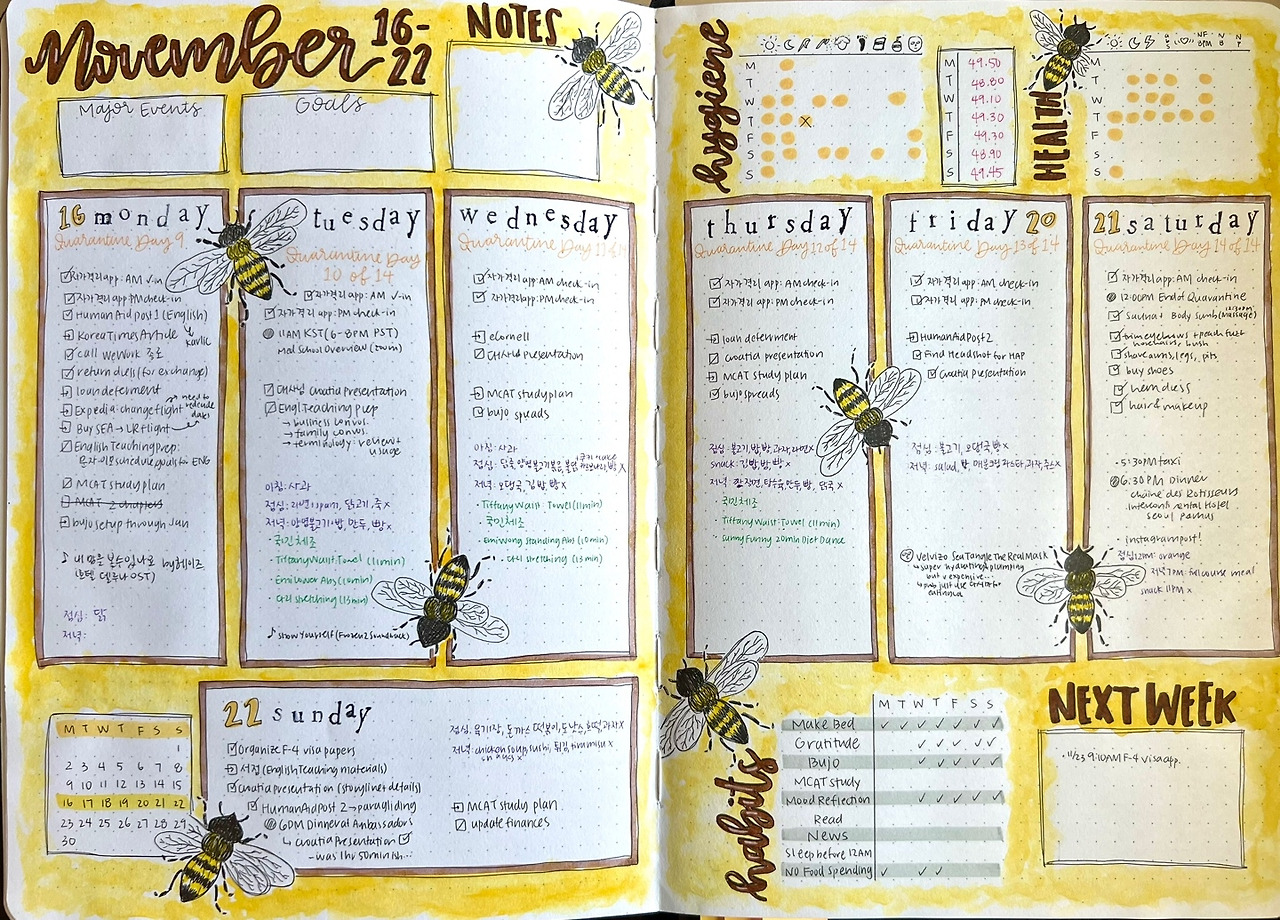 November 16-22
NOTES
Major Events
Goals
16 monday
Quarantine Day 9
자가격리 app: AM ✓-in
자가격리 app PM check-in
Human Aid post 1 (English)
Korea Times Article
call WeWork 종로
return dress (for exchange)
loan deferment
Expedia-change flight
need to redeude date
Buy SEA → LR flight
English Teaching prep:
MCAT study plan
MCAT 2 chapters
bujo setup through Jan
♪ 내 맘을 볼수있나요 by 헤이즈
(호텔 델루나 OST)
점심: 닭
저녁:
tuesday
Quarantine Day
10 of 14
자가격리 app: AM ✓-in
자가격리 app: PM check-in
11AM KST (6-8PM PST)
Med School Overview (zoom)
대사님 Croatia presentation
Engl Teaching prep
→ business convos.
→ family convos.
→ terminology: review +
usage
아침: 사과
점심: 라면 1 spam, 닭고기, 죽 x
저녁: 양념불고기+밥, 만두, 빵 x
· 국민체조
· Tiffany Waist: Towel (11min)
· Emi Lower Abs (10min)
· 다리 stretching (13min)
♪ Show Yourself (Frozen 2 Soundtrack)
wednesday
Quarantine Day 11 of 14
자가격리 app: AM check-in
자가격리 app: PM check-in
eCornell
대사님 presentation
MCAT study plan
bujo spreads
아침: 사과
저녁: 오뎅국, 김밥, 빵 x
· Tiffany Waist: Towel (11min)
· 국민체조
· Emi Wong Standing Abs (10min)
· 다리 stretching (13min)
hygiene
M
T
W
T
F
S
S
M 49.50
T 48.80
W 49.10
T 49.30
F 49.30
S 48.90
S 49.45
HEALTH
NF 8PM
M
T
W
T
F
S
S
thursday
Quarantine Day 12 of 14
자가격리 app: AM check-in
자가격리 app: PM check-in
loan deferment
Croatia presentation
MCAT study plan
bujo spreads
점심: 불고기, 밥, 빵, 과자, 라면 x
snack: 김밥, 빵, 빵 x
저녁: 짜장면, 탕수육, 만두, 밥, 닭국 x
· 국민체조
· Tiffany Waist: Towel (11min)
· Sunny Funny 20min Diet Dance
friday 20
Quarantine Day 13 of 14
자가격리 app: AM check-in
자가격리 app: PM check-in
Human Aid Post 2
Find Headshot for HAP
Croatia presentation
점심: 불고기, 오뎅국, 밥 x
저녁: salad, 밥, 매운크림파스타, 과자, 주스 x
Velvizo Sea Tangle The Real Mask
↳ super hydrating & plumping
but v expensive...
21 saturday
Quarantine Day 14 of 14
자가격리 app: AM check-in
12:00PM End of Quarantine
Sauna + Body Scrub (massage)
12:30pm
trim eyebrows + peach fuzz
shave arms, legs, pits
buy shoes
hem dress
hair & makeup
· 5:30PM taxi
6:30PM Dinner
Chaîne des Rotisseurs
Intercontinental Hotel
Seoul Parnas
· instagram post!
점심 12PM: orange
저녁 7PM: full course meal
snack 11PM x
M T W T F S S
1
2 3 4 5 6 7 8
9 10 11 12 13 14 15
16 17 18 19 20 21 22
23 24 25 26 27 28 29
30
22 sunday
Organize F-4 visa papers
서점 (English Teaching materials)
Croatia Presentation (storyline + details)
Human Aid Post 2 → paragliding
6PM Dinner at Ambassadors
↳ Croatia Presentation
- was 1hr 50min ish...
점심: 육개장, 돈까스, 떡볶이, 도넛스, 호떡, 과자 x
저녁: chicken soup, sushi, 튀김, tiramisu x
MCAT study plan
update finances
habits
M T W T F S S
Make Bed
Gratitude
Bujo
MCAT study
Mood Reflection
Read
News
Sleep before 12AM
NO Food Spending
NEXT WEEK
· 11/23 9:10AM F-4 visa app.